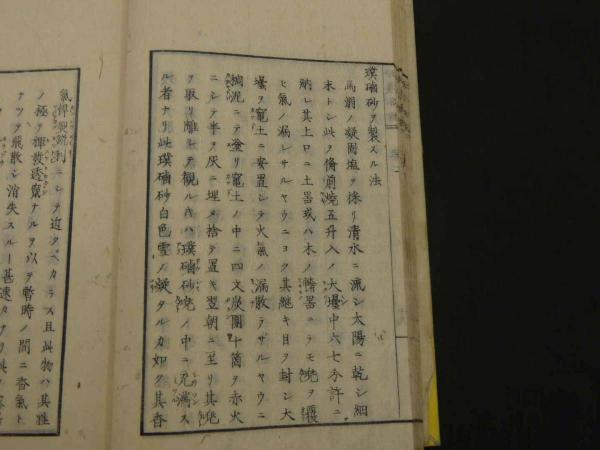 璞硇砂ヲ製スル法
馬溺ノ凝固塩ヲ採リ清水ニ漉シ太陽ニ乾シ細
末トシ此ヲ備前焼五升入ノ大壜中六七分許ニ
納レ其上口ニ土器或ハ木ノ器ニテモ ヲ
ヒ氣ノ漏レサルヤウニヨク其継キ目ヲ封シ大
壜ヲ竈土ニ安置シテ火氣ノ漏散ラザルヤウニ
泥ニテ塗リ竈土ノ中ニ四文炭團十箇ヲ赤火
ニシテ半ヲ灰ニ埋メ捨テ置キ翌朝ニ至リ其
ヲ取リ離シテ観ルキハ璞硇砂 ノ中ニ充満ス
ル者ナリ此璞硇砂白色雪ノ凝タルカ如ク其香
氣悍烈鋭利ニシテ近クベカラス且此物ハ其性
ノ極テ揮發透竄ナルヲ以テ暫時ノ間ニ香氣ト
ナツテ飛散シ消失スルー甚速カナリ